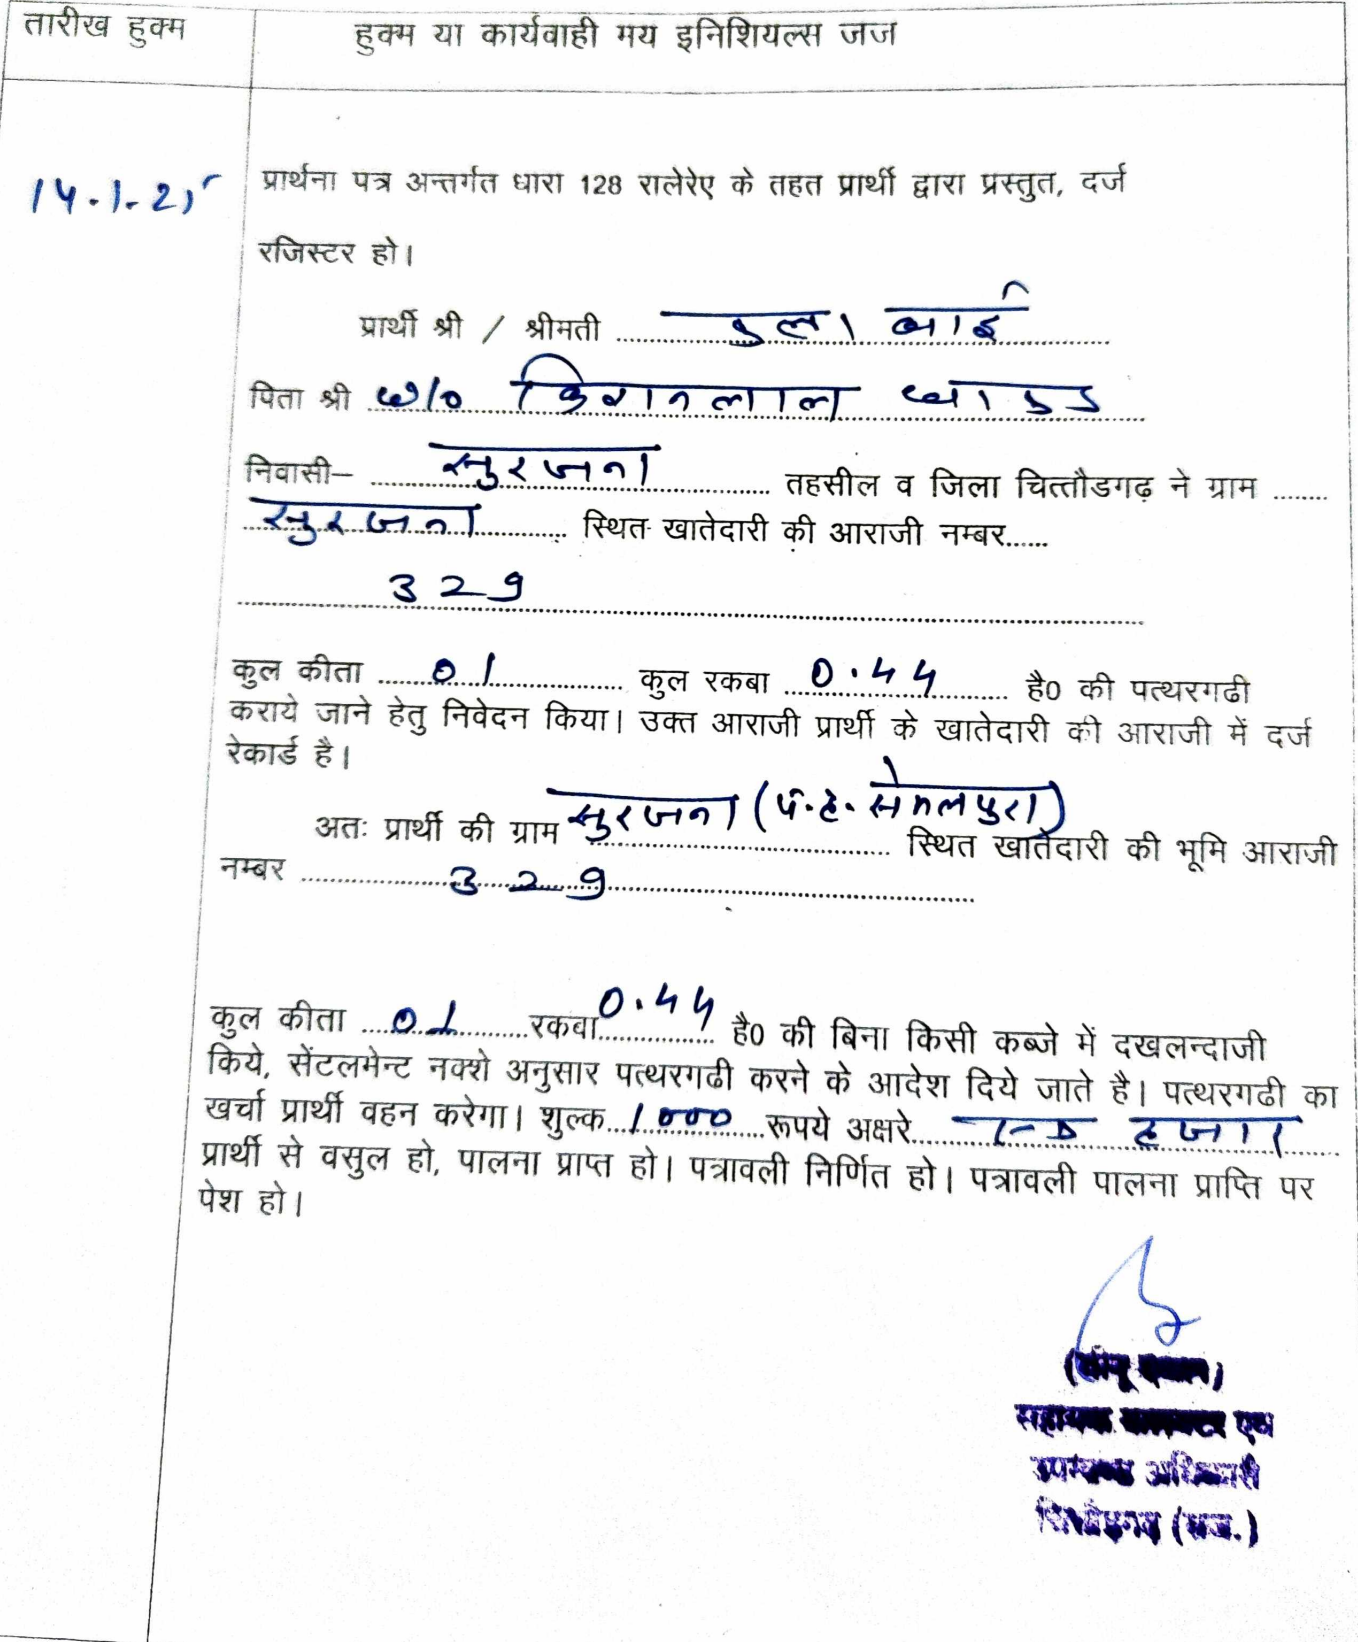 तारीख हुक्म
हुक्म या कार्यवाही मय इनिशियल्स जज
14.1.25
प्रार्थना पत्र अन्तर्गत धारा 128 रालेरेए के तहत प्रार्थी द्वारा प्रस्तुत, दर्ज
रजिस्टर हो।
प्रार्थी श्री / श्रीमती ............ बाई ............
पिता श्री w/o किशनलाल
निवासी– ...... सुरजना ............ तहसील व जिला चित्तौडगढ़ ने ग्राम ........
सुरजना ............ स्थित खातेदारी की आराजी नम्बर......
329
कुल कीता ...... 01 ............ कुल रकबा ... 0.44 ......... है0 की पत्थरगढी
कराये जाने हेतु निवेदन किया। उक्त आराजी प्रार्थी के खातेदारी की आराजी में दर्ज
रेकार्ड है।
अतः प्रार्थी की ग्राम सुरजना (प.ह. सेमलपुरा) स्थित खातेदारी की भूमि आराजी
नम्बर .................. 329 ..............................
कुल कीता .... 01 .......... रकबा 0.44 है0 की बिना किसी कब्जे में दखलन्दाजी
किये, सेंटलमेन्ट नक्शे अनुसार पत्थरगढी करने के आदेश दिये जाते है। पत्थरगढी का
खर्चा प्रार्थी वहन करेगा। शुल्क...1000......रूपये अक्षरे...... एक हजार
प्रार्थी से वसुल हो, पालना प्राप्त हो। पत्रावली निर्णित हो। पत्रावली पालना प्राप्ति पर
पेश हो।
सहायक कलक्टर एवं
उपखण्ड अधिकारी
चित्तौड़गढ़ (राज.)